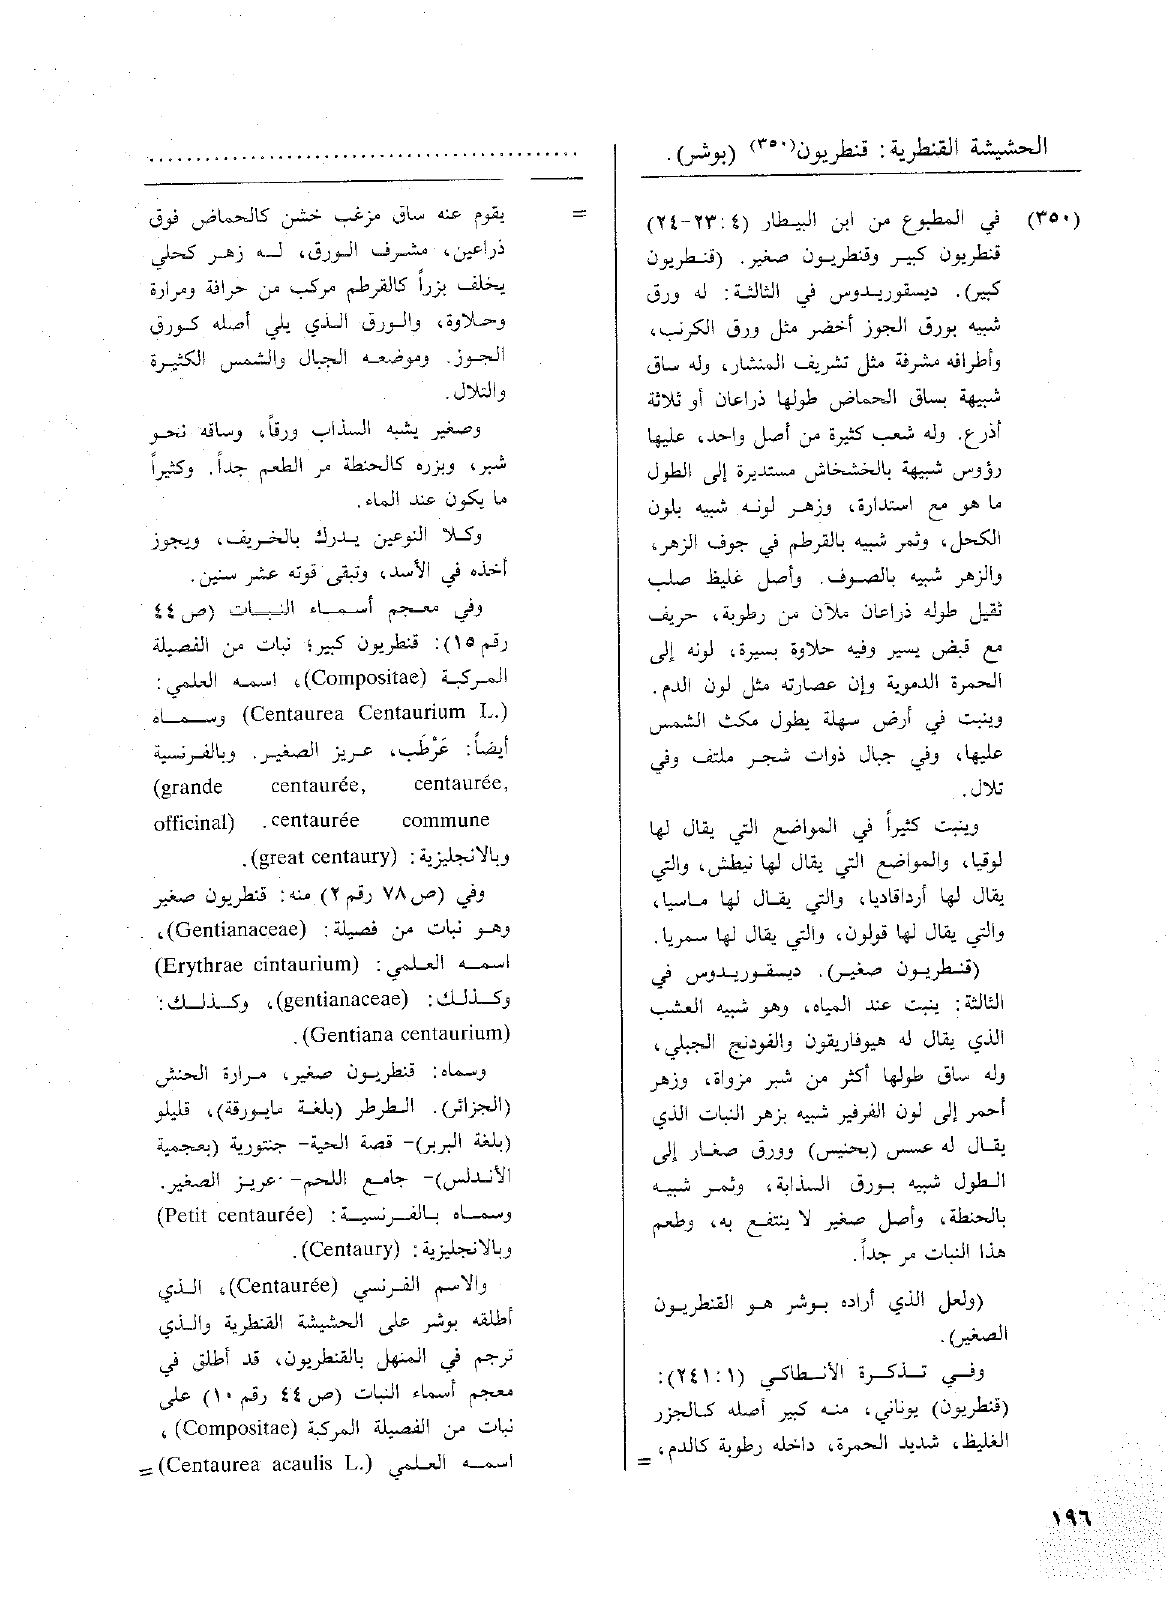 الحشيشة القنطرية: قنطريون(٣٥٠) (بوشر).
(٣٥٠) في المطبوع من ابن البيطار (٤ :٢٣-٢٤)
قنطريون كبير وقنطريون صغير. (قنطريون
كبير). ديسقوريدوس في الثالثة: له ورق
شبيه بورق الجوز أخضر مثل ورق الكرنب،
وأطرافه مشرفة مثل تشريف المنشار، وله ساق
شبيهة بساق الحماض طولها ذراعان أو ثلاثة
أذرع. وله شعب كثيرة من أصل واحد، عليها
رؤوس شبيهة بالخشخاش مستديرة إلى الطول
ما هو مع استدارة، وزهر لونه شبيه بلون
الكحل، وثمر شبيه بالقرطم في جوف الزهر،
والزهر شبيه بالصوف. وأصل غليظ صلب
ثقيل طوله ذراعان ملآن من رطوبة، حريف
مع قبض يسير وفيه حلاوة يسيرة، لونه إلى
الحمرة الدموية وإن عصارته مثل لون الدم.
وينبت في أرض سهلة يطول مكث الشمس
عليها، وفي جبال ذوات شجر ملتف وفي
تلال.
وينبت كثيراً في المواضع التي يقال لها
لوقيا، والمواضع التي يقال لها نيطش، والتي
يقال لها أرداقاديا، والتي يقال لها ماسيا،
والتي يقال لها قولون، والتي يقال لها سمريا.
(قنطريون صغير). ديسقوريدوس في
الثالثة: ينبت عند المياه، وهو شبيه العشب
الذي يقال له هيوفاريقون والفودنج الجبلي،
وله ساق طولها أكثر من شبر مزواة، وزهر
أحمر إلى لون الفرفير شبيه بزهر النبات الذي
يقال له عسس (بحنيس) وورق صغار إلى
الطول شبيه بورق السذابة، وثمر شبيه
بالحنطة، وأصل صغير لا ينتفع به، وطعم
هذا النبات مر جداً.
(ولعل الذي أراده بوشر هو القنطريون
الصغير).
وفي تذكرة الأنطاكي (١ :٢٤١):
(قنطريون) يوناني، منه كبير أصله كالجزر
الغليظ، شديد الحمرة، داخله رطوبة كالدم، =
..........................................
= يقوم عنه ساق مزغب خشن كالحماض فوق
ذراعين، مشرف الورق، له زهر كحلي
يخلف بزراً كالقرطم مركب من حرافة ومرارة
وحلاوة، والورق الذي يلي أصله كورق
الجوز. وموضعه الجبال والشمس الكثيرة
والتلال.
وصغير يشبه السذاب ورقاً، وساقه نحو
شبر، وبزره كالحنطة مر الطعم جداً. وكثيراً
ما يكون عند الماء.
وكلا النوعين يدرك بالخريف، ويجوز
أخذه في الأسد، وتبقى قوته عشر سنين.
وفي معجم أسماء النبات (ص ٤٤
رقم ١٥): قنطريون كبير؛ نبات من الفصيلة
المركبة (Compositae)، اسمه العلمي:
(Centaurea Centaurium L.) وسماه
أيضاً: عَرْطَب، عريز الصغير. وبالفرنسية
(grande centaurée, centaurée,
officinal) .centaurée commune
وبالانجليزية: (great centaury).
وفي (ص ٧٨ رقم ٢) منه: قنطريون صغير
وهو نبات من فصيلة: (Gentianaceae)،
اسمه العلمي: (Erythrae cintaurium)
وكذلك: (gentianaceae)، وكذلك:
(Gentiana centaurium).
وسماه: قنطريون صغير، مرارة الحنش
(الجزائر). الطرطر (بلغة مايورقة)، قليلو
(بلغة البربر)- قصة الحية- جنتورية (بعجمية
الأندلس)- جامع اللحم- عريز الصغير.
وسماه بالفرنسية: (Petit centaurée)
وبالانجليزية: (Centaury).
والاسم الفرنسي (Centaurée)، الذي
أطلقه بوشر على الحشيشة القنطرية والذي
ترجم في المنهل بالقنطريون، قد أطلق في
معجم أسماء النبات (ص ٤٤ رقم ١٠) على
نبات من الفصيلة المركبة (Compositae)،
اسمه العلمي (Centaurea acaulis L.) =
١٩٦